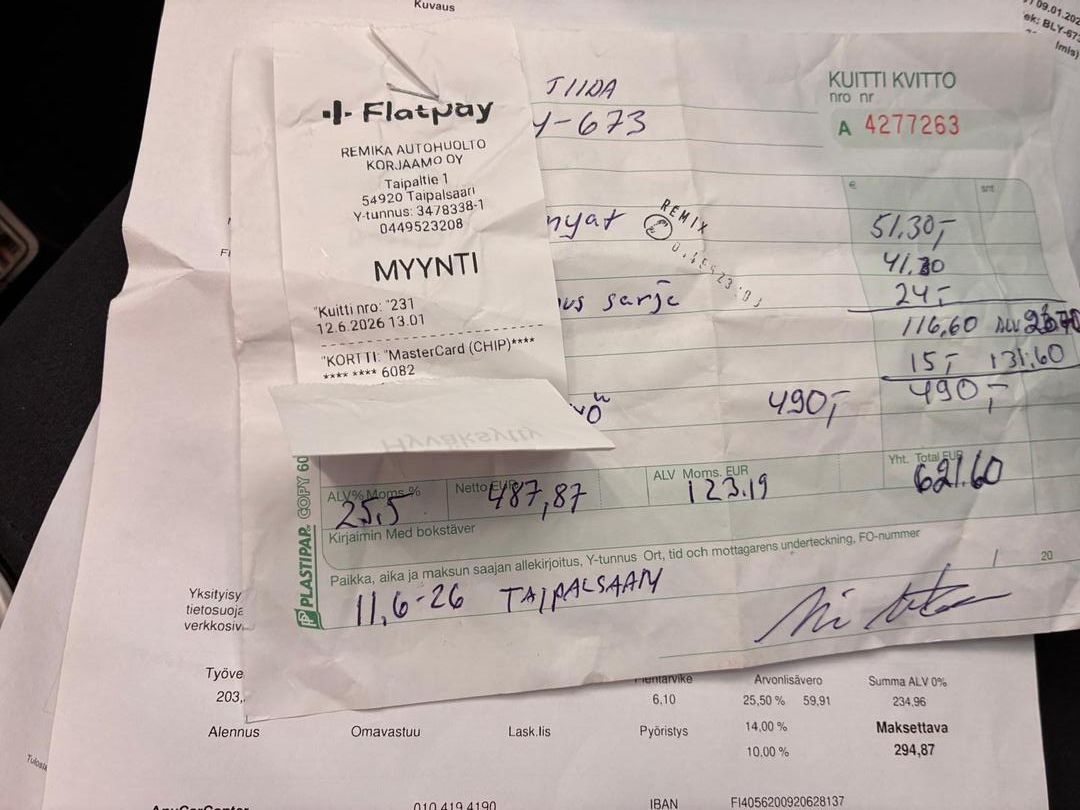 Kuvaus
09.01.202
BLY-673
lmis)
Flatpay
REMIKA AUTOHUOLTO
KORJAAMO OY
Taipaltie 1
54920 Taipalsaari
Y-tunnus: 3478338-1
0449523208
MYYNTI
"Kuitti nro: "231
12.6.2026 13.01
"KORTTI: "MasterCard (CHIP)****
**** **** 6082
Hyväksytty
TIIDA
Y-673
KUITTI KVITTO
nro nr
A 4277263
€ snt
REMIX
51,30,-
41,30
sarja 24,-
116,60 ALV
15,- 131,60
490,- 490,-
ALV% Moms.% 25,5
Netto EUR 487,87
ALV Moms. EUR 123.19
Yht. Total EUR 621.60
Kirjaimin Med bokstäver
Paikka, aika ja maksun saajan allekirjoitus, Y-tunnus Ort, tid och mottagarens underteckning, FO-nummer
11,6-26 TAIPALSAARI
20
PLASTIPAP COPY 60
Yksityisy
tietosuoja
verkkosiv
Työve
203,
Pientarvike
6,10
Arvonlisävero
25,50 % 59,91
14,00 %
10,00 %
Summa ALV 0%
234,96
Alennus Omavastuu Lask.lis Pyöristys
Maksettava
294,87
Tulost
AnyCarCenter 010 419 4190 IBAN FI4056200920628137